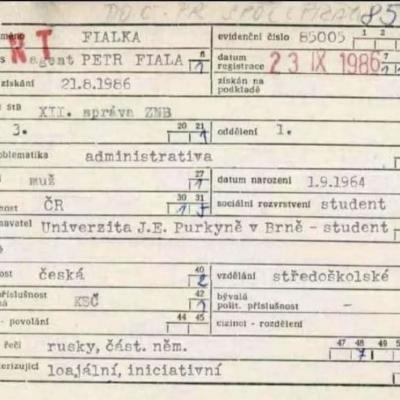 DO C. PR
méno FIALKA evidenční číslo 85005 1 2
RT
s agent PETR FIALA 6 1 datum registrace 23 IX 1986 7 1
získání 21.8.1986 získán na podkladě
StB XII. správa ZNB
3. 20 21 1 oddělení 1.
oblematika administrativa
muž 27 1 datum narození 1.9.1964
nost ČR 30 31 1 5 sociální rozvrstvení student
navatel Univerzita J.E. Purkyně v Brně - student
é
ost česká 40 2 vzdělání středoškolské
příslušnost KSČ 42 1 bývalá polit. příslušnost -
- povolání 44 45 cizinci - rozdělení
řeči rusky, část. něm. 47 48 49 7
terizující loajální, iniciativní